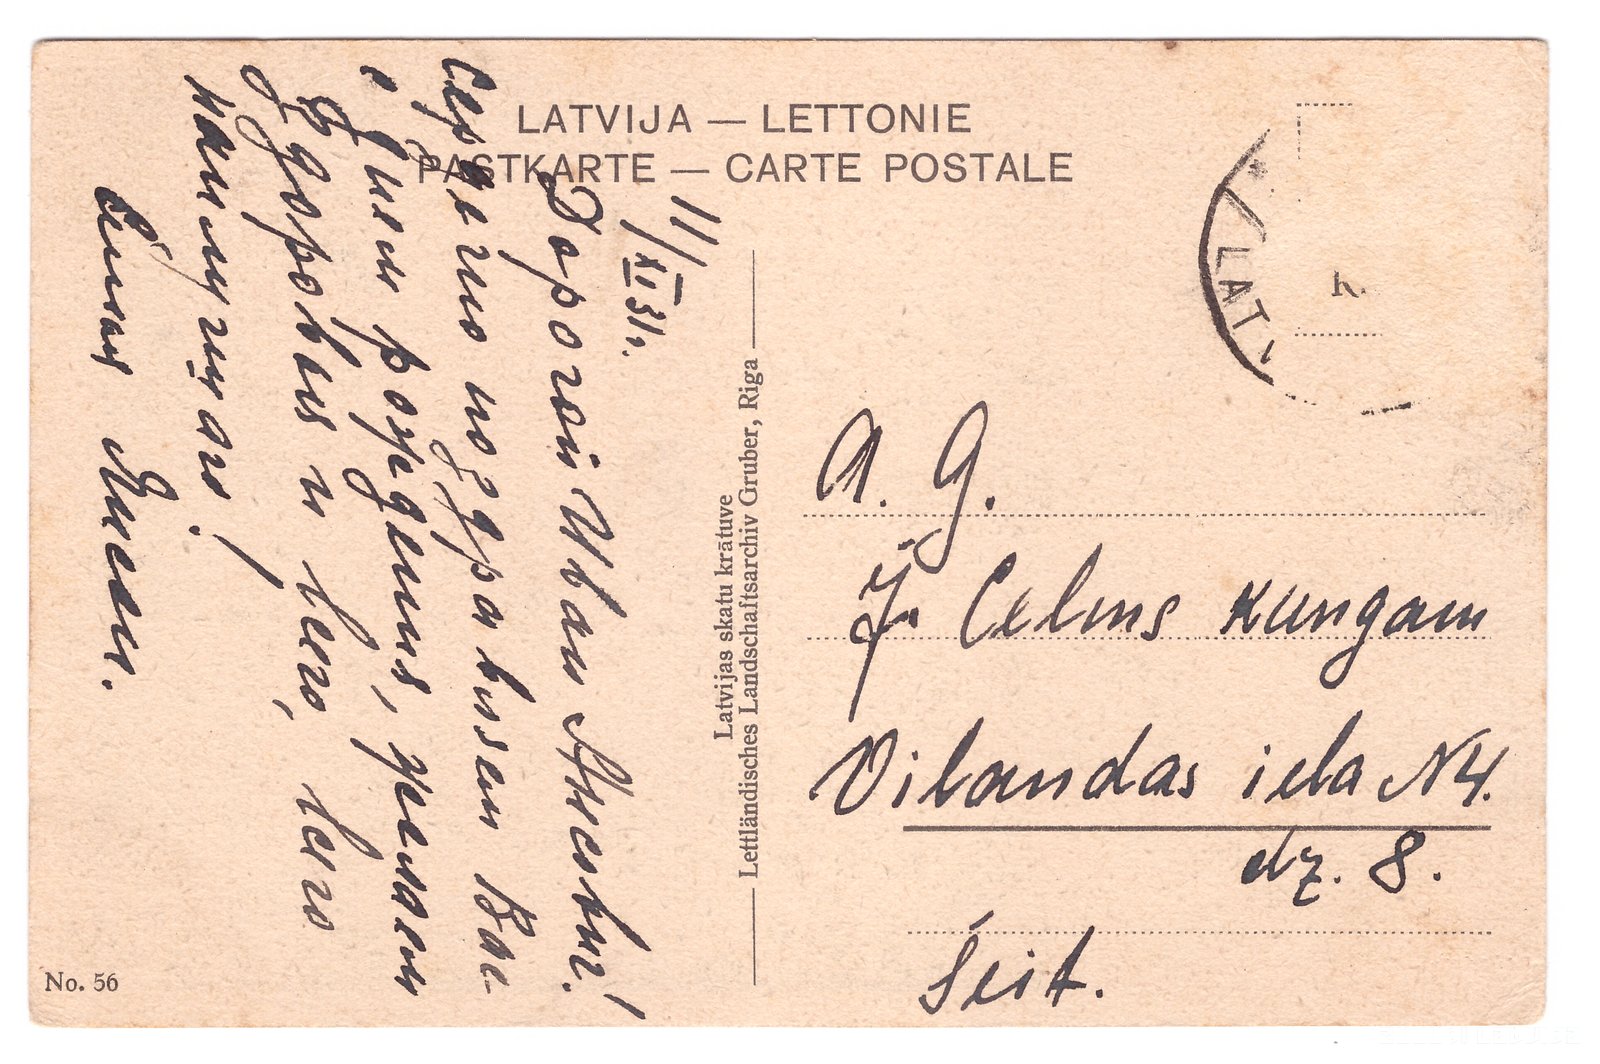 LATVIJA — LETTONIE
PASTKARTE — CARTE POSTALE
LATV
11/XI 31г.
Дорогой Иван Иванович!
Сердечно поздравляем Вас
с Днем рождения, желаем
здоровья и всего, всего
наилучшего!
Семья
Latvijas skatu krātuve
Lettländisches Landschaftsarchiv Gruber, Riga
A. G.
J. Celms kungam
Vilandas iela N 4.
dz. 8.
Šeit.
No. 56